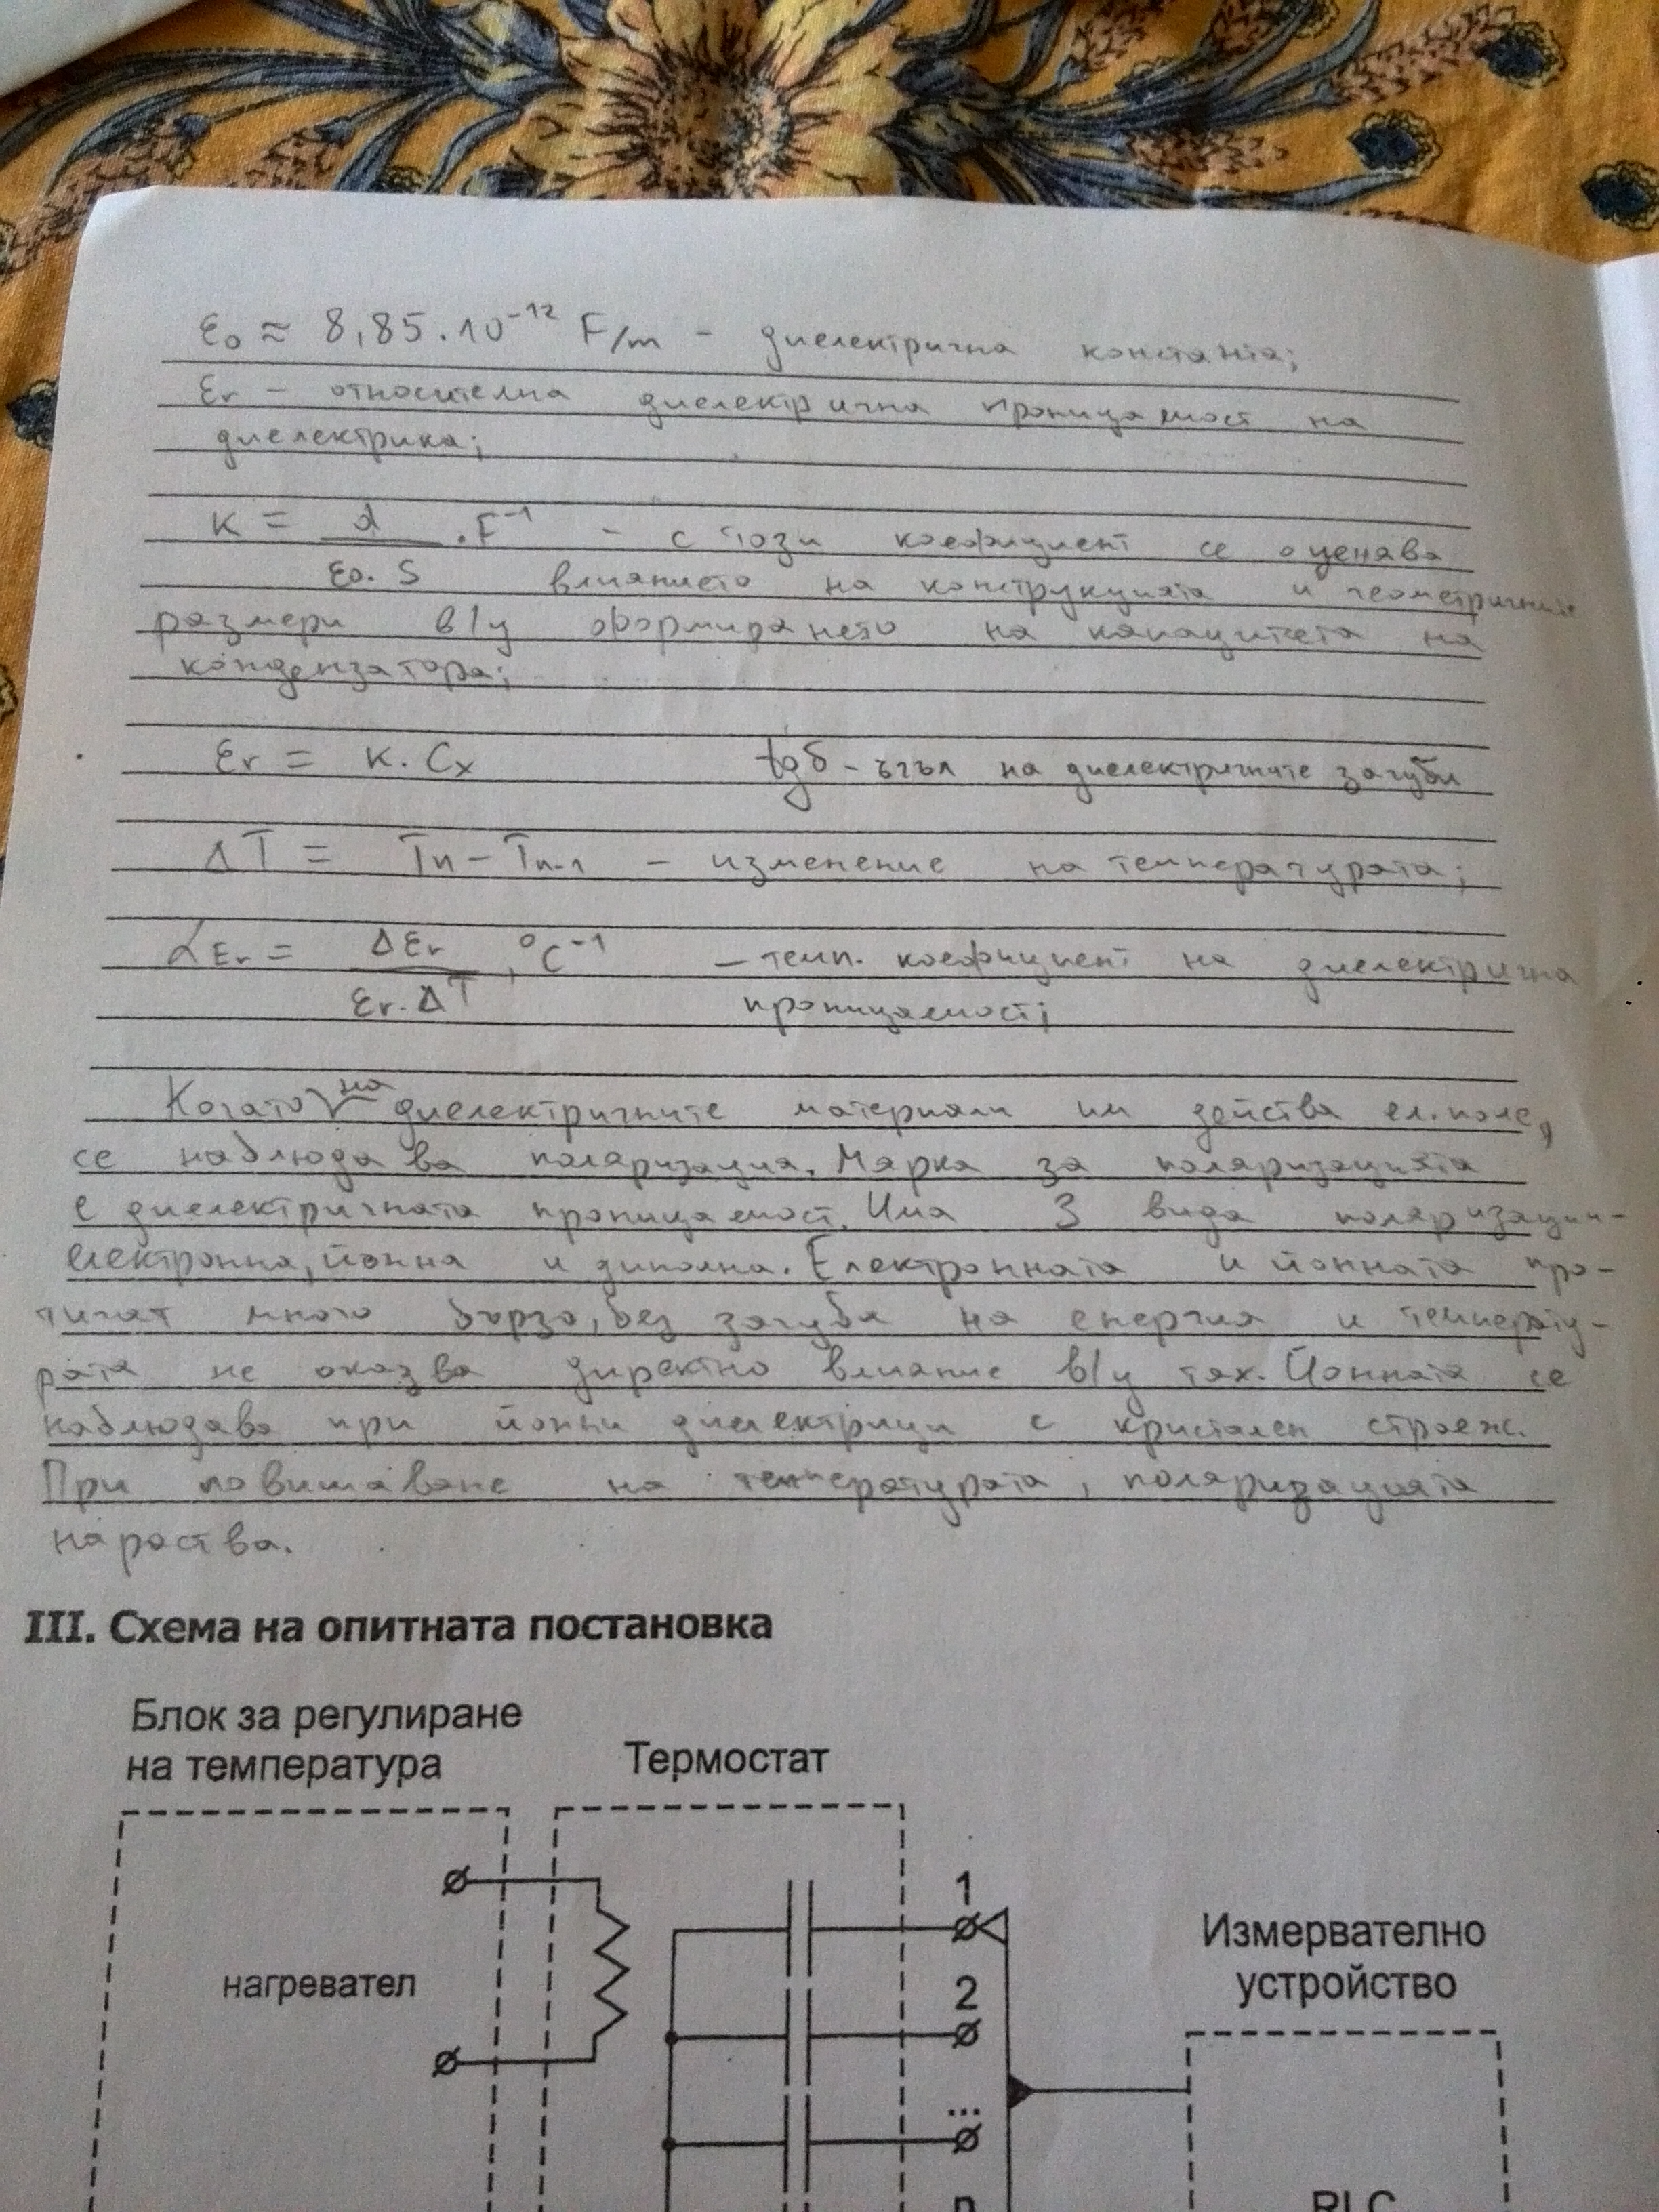 ε₀ ≈ 8,85.10⁻¹² F/m - диелектрична константа;
εr - относителна диелектрична проницаемост на
диелектрика;
K = d / ε₀.S .F⁻¹ - с този коефициент се оценява
влиянието на конструкцията и геометричните
размери в/у оформянето на капацитета на
кондензатора;
εr = K.Cx tgδ - ъгъл на диелектричните загуби
ΔT = Tn - Tn-1 - изменение на температурата;
αεr = Δεr / εr.ΔT , °C⁻¹ - темп. коефициент на диелектрична
проницаемост;
Когато на диелектричните материали им действа ел.поле,
се наблюдава поляризация. Мярка за поляризацията
е диелектричната проницаемост. Има 3 вида поляризации-
електронна, йонна и диполна. Електронната и йонната про-
тичат много бързо, без загуба на енергия и температу-
рата не оказва директно влияние в/у тях. Йонната се
наблюдава при йонни диелектрици с кристален строеж.
При повишаване на температурата, поляризацията
нараства.
III. Схема на опитната постановка
Блок за регулиране
на температура
Термостат
нагревател
1
2
...
n
Измервателно
устройство
RLC